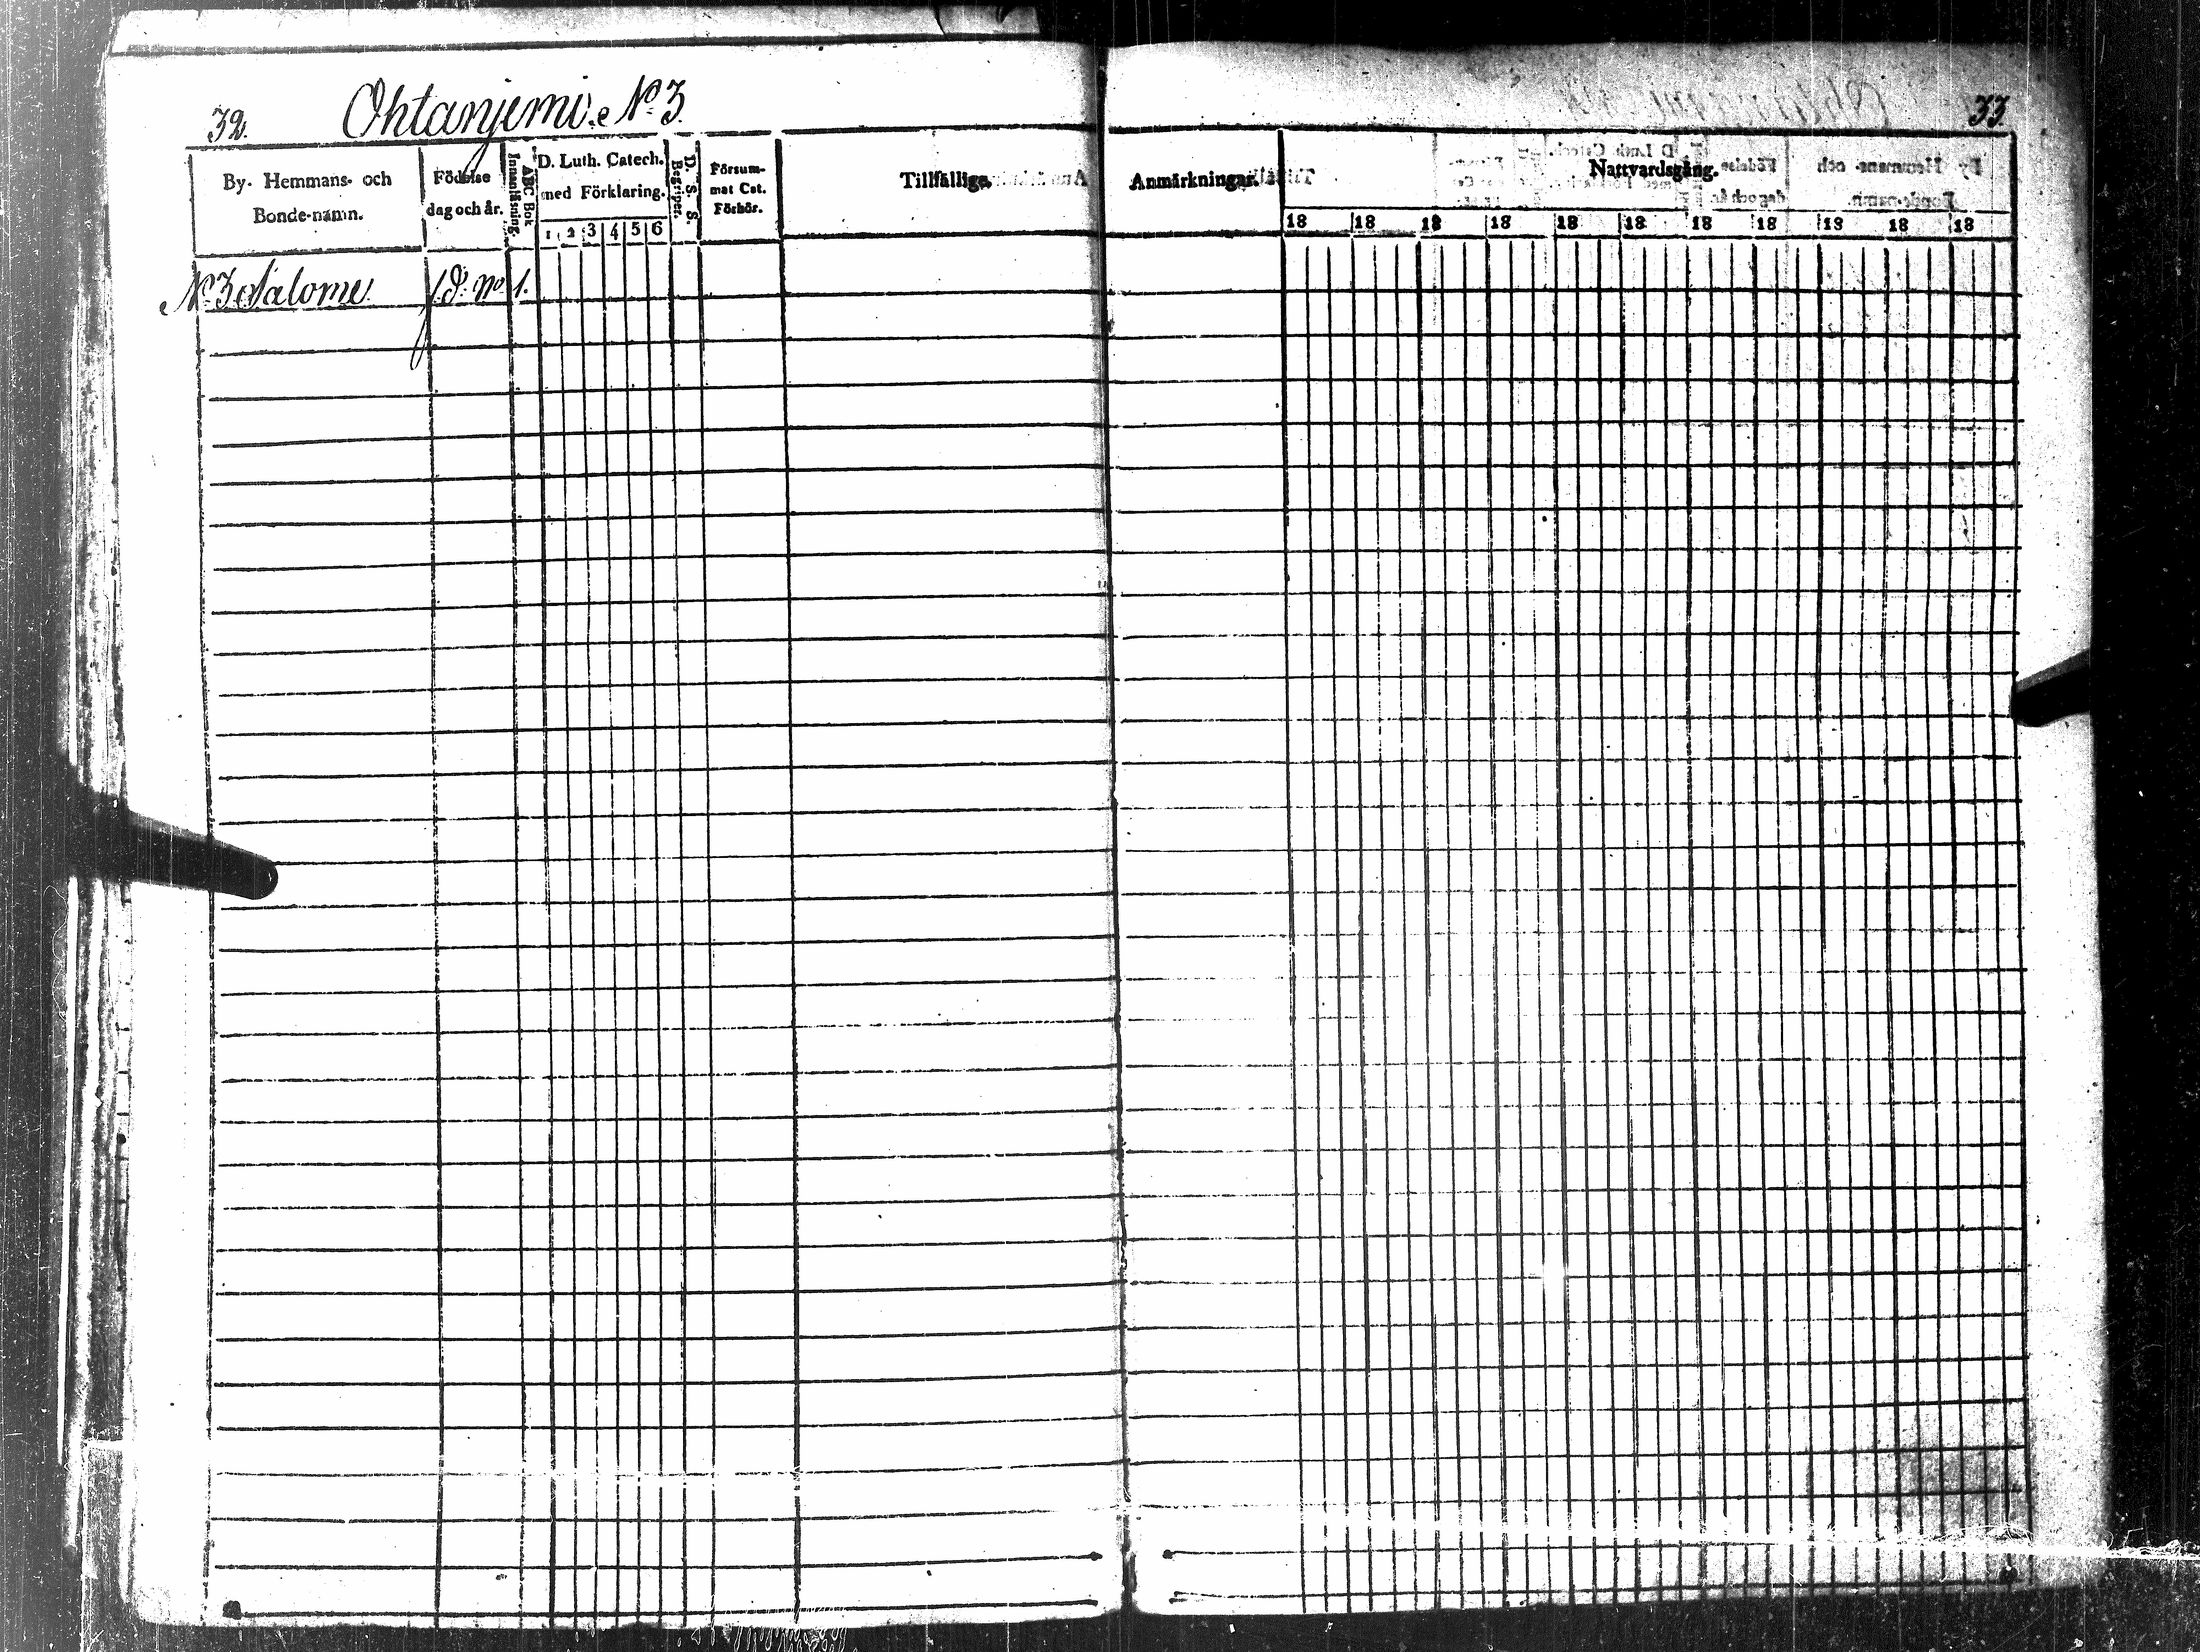 32. Ohtanjemi. No 3
33.
By- Hemmans- och Bonde-namn.
Födelse dag och år.
ABC Bok Innanläsning.
D. Luth. Catech. med Förklaring.
1 2 3 4 5 6
D. S. S. Begriper.
Försum- mat Cat. Förhör.
Tillfällige
Anmärkningar.
Nattvardsgång.
18 18 18 18 18 18 18 18 18 18 18
No 3 Salome
No 1.